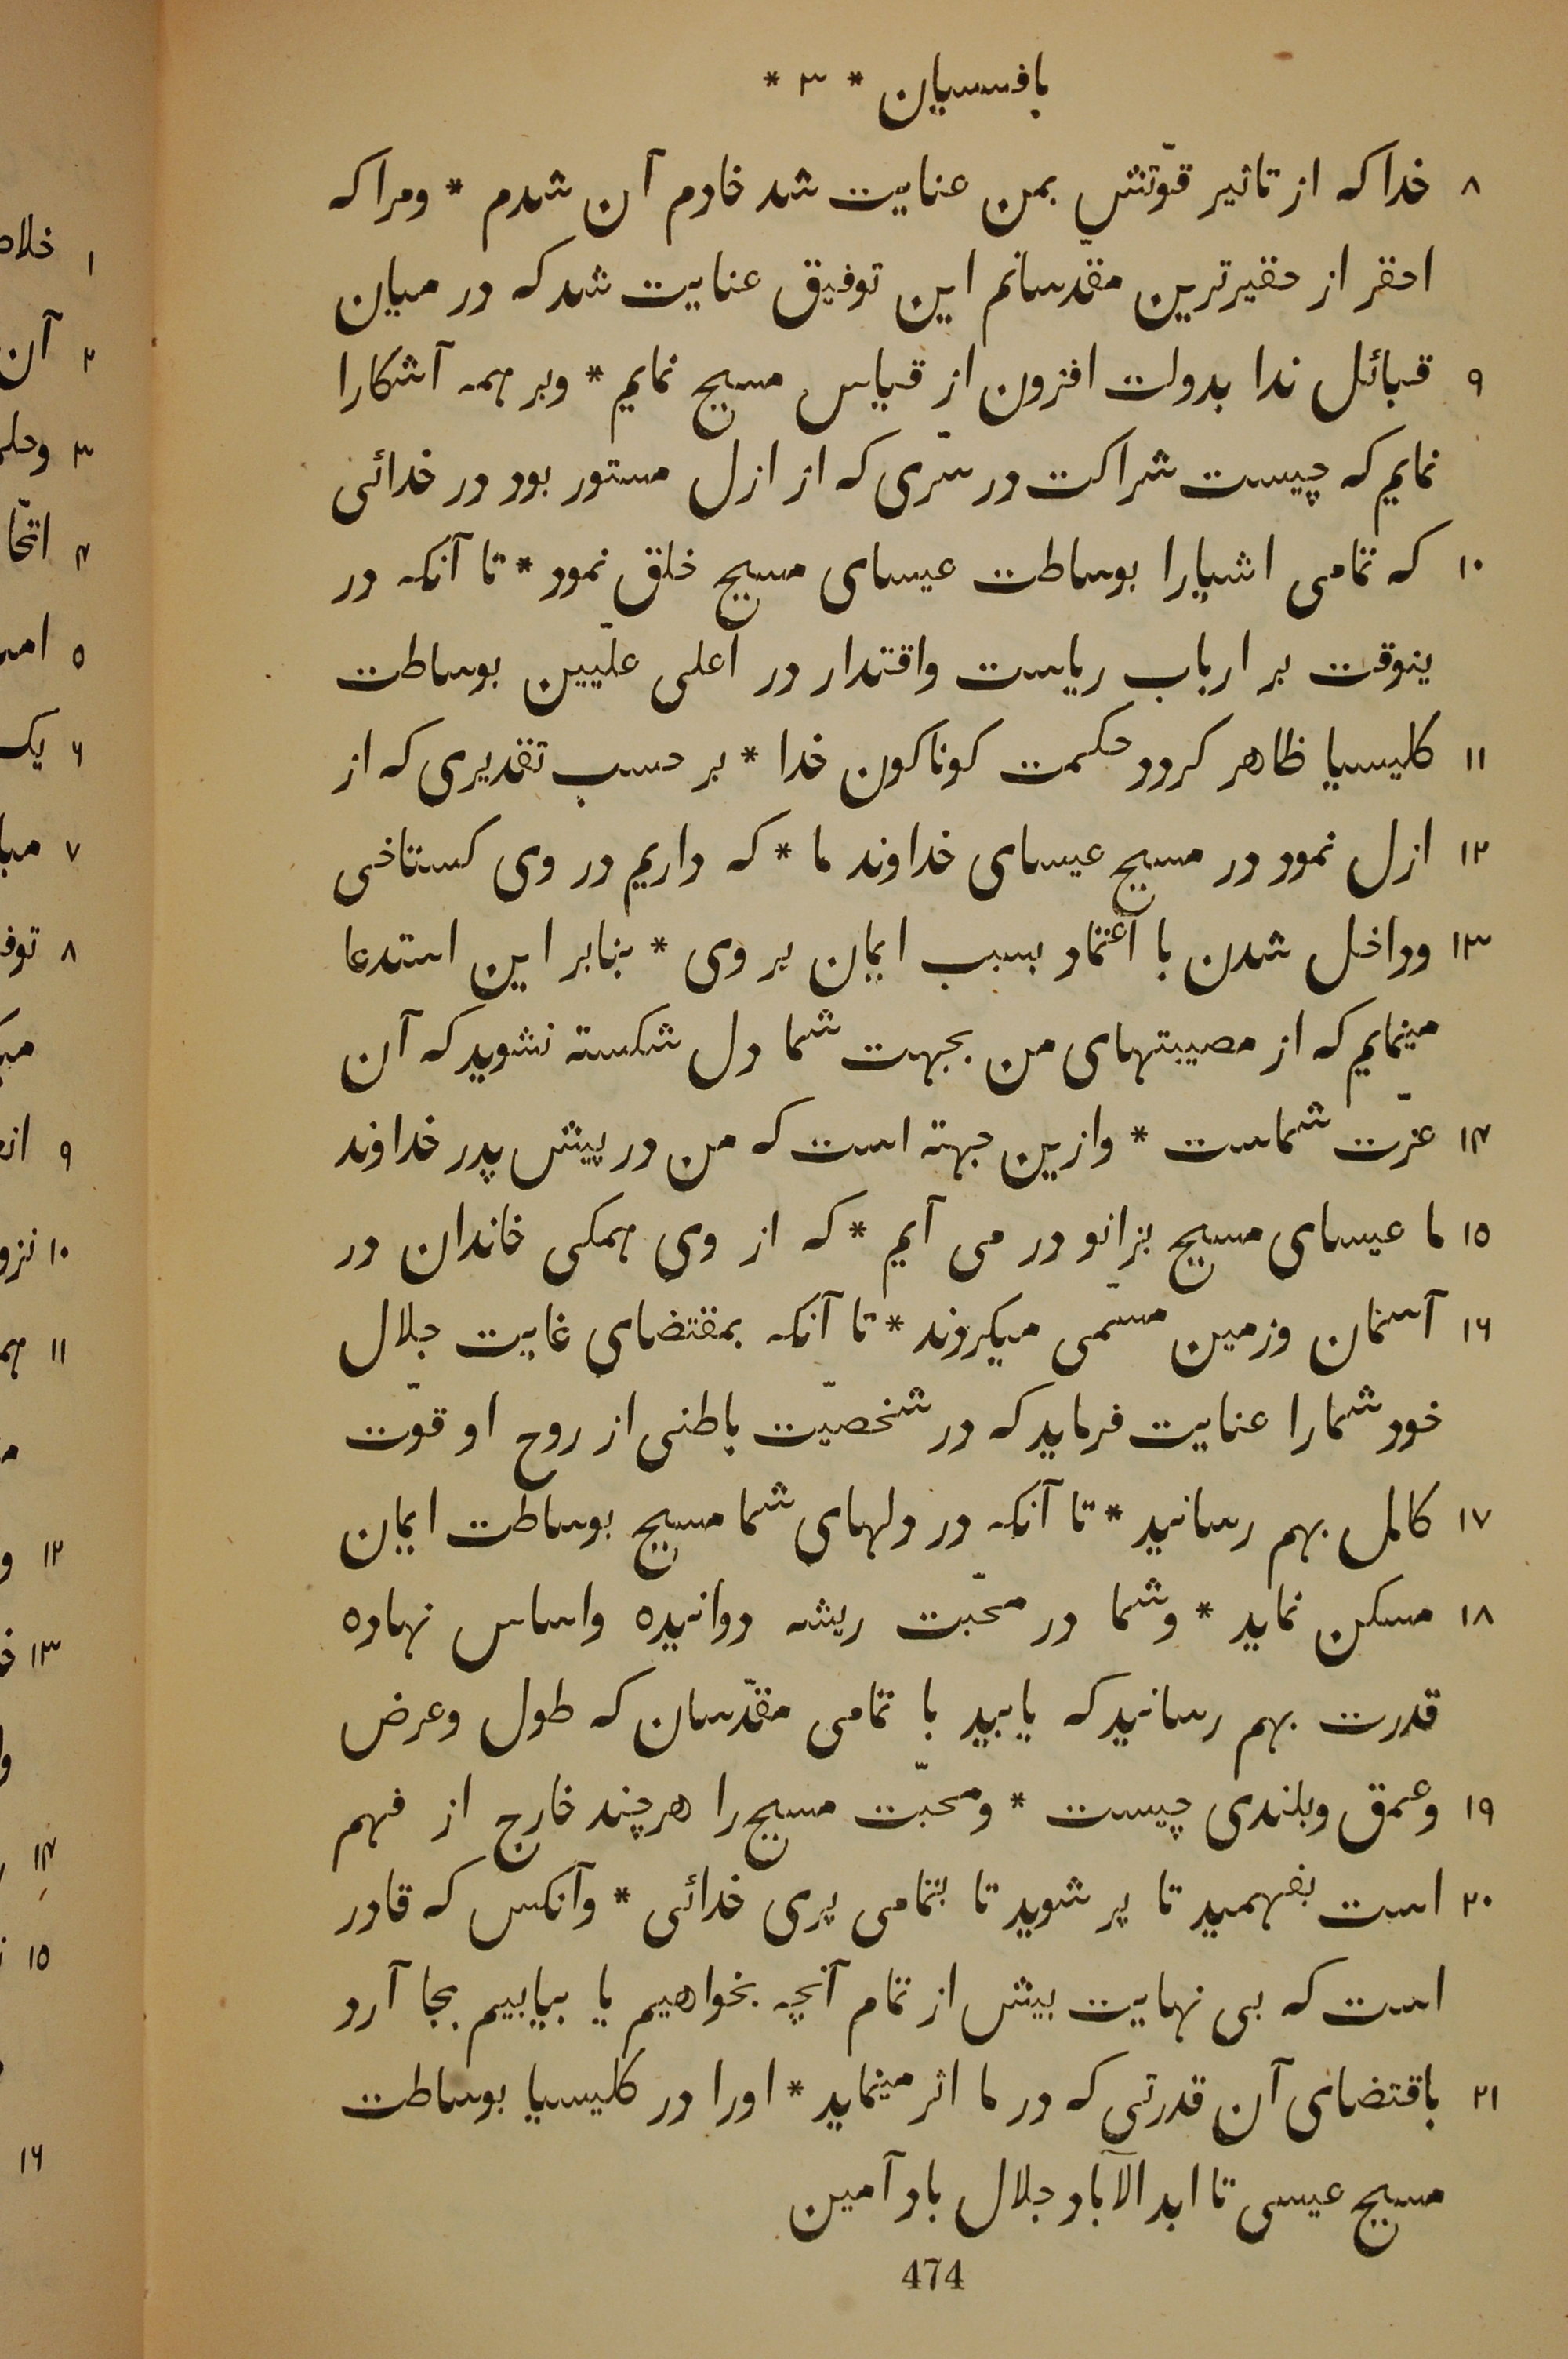 بافسسیان * ۳ *
۸ خدا که از تاثیر قوّتش بمن عنایت شد خادم آن شدم * ومرا که
احقر از حقیرترین مقدّسانم این توفیق عنایت شد که در میان
۹ قبائل ندا بدولت افزون از قیاس مسیح نمایم * وبر همه آشکارا
نمایم که چیست شراکت در سرّی که از ازل مستور بود در خدائی
۱۰ که تمامی اشیارا بوساطت عیسای مسیح خلق نمود * تا آنکه در
ینوقت بر ارباب ریاست واقتدار در اعلی علّیین بوساطت
۱۱ کلیسیا ظاهر کردد حکمت کوناکون خدا * بر حسب تقدیری که از
۱۲ ازل نمود در مسیح عیسای خداوند ما * که داریم در وی کستاخی
۱۳ وداخل شدن با اعتماد بسبب ایمان بر وی * بنابر این استدعا
مینمایم که از مصیبتهای من بجهت شما دل شکسته نشوید که آن
۱۴ عزّت شماست * وازین جهته است که من در پیش پدر خداوند
۱۵ ما عیسای مسیح بزانو در می آیم * که از وی همکی خاندان در
۱۶ آسمان وزمین مسمّی میکردند * تا آنکه بمقتضای غایت جلال
خود شمارا عنایت فرماید که در شخصیّت باطنی از روح او قوّت
۱۷ کامل بهم رسانید * تا آنکه در دلهای شما مسیح بوساطت ایمان
۱۸ مسکن نماید * وشما در محبّت ریشه دوانیده واساس نهاده
قدرت بهم رسانید که یابید با تمامی مقدّسان که طول وعرض
۱۹ وعمق وبلندی چیست * ومحبّت مسیح را هرچند خارج از فهم
۲۰ است بفهمید تا پر شوید تا بتمامی پری خدائی * وآنکس که قادر
است که بی نهایت بیش از تمام آنچه بخواهیم یا بیابیم بجا آرد
۲۱ باقتضای آن قدرتی که در ما اثر مینماید * اورا در کلیسیا بوساطت
مسیح عیسی تا ابد الآباد جلال باد آمین
474